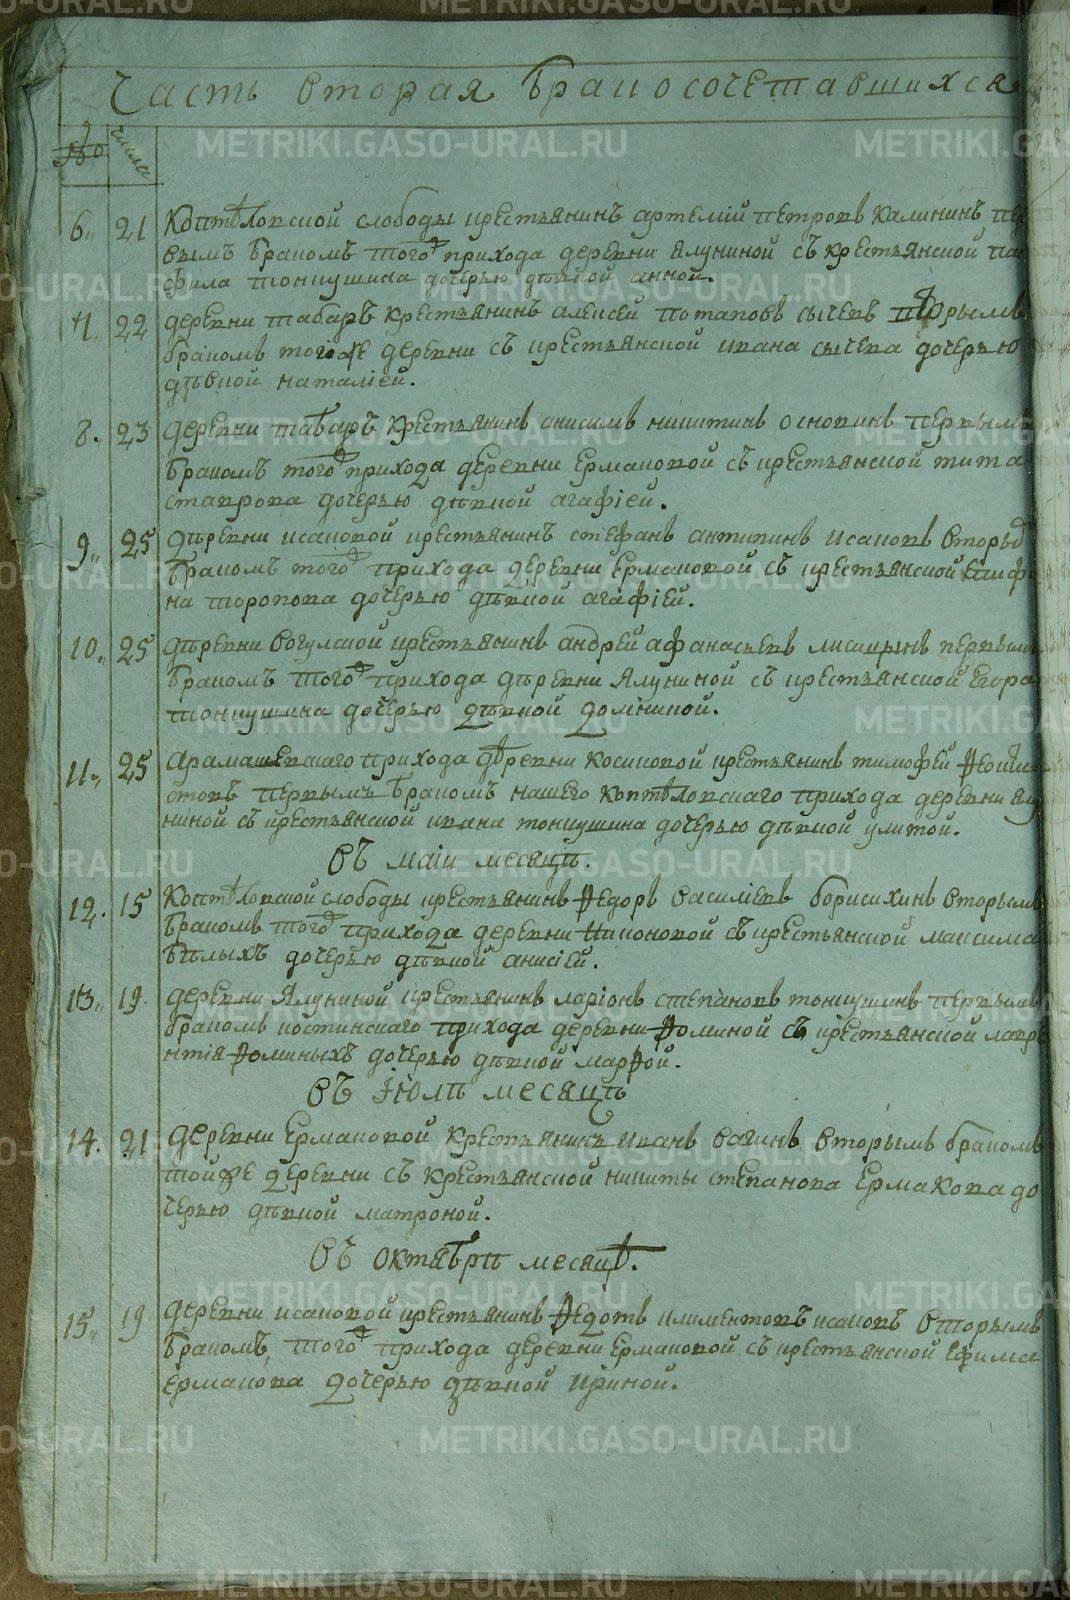 Часть вторая бракосочетавшихся
№ числа
6. 21 Коптѣловской слободы крестьянинъ артемій петровъ калининъ пер
вымъ бракомъ того ж прихода деревни ялуниной съ крестьянской пам
фила тонкушина дочерью дѣвкой анной.
7. 22 деревни табаръ крестьянинъ алексей потаповъ сычевъ вторымъ
бракомъ тогоже деревни съ крестьянской ивана сычева дочерью
дѣвкой наталіей.
8. 23 деревни табаръ крестьянинъ анисимъ никитинъ осковинъ первымъ
бракомъ того ж прихода деревни Ермаковой съ крестьянской тита
ставрова дочерью дѣвкой агафіей.
9. 25 дѣревни исаковой крестьянинъ стефанъ антипинъ исаковъ вторы
бракомъ того ж прихода деревни Ермаковой съ крестьянской
на торопова дочерью дѣвкой агафіей.
10. 25 дѣревни вогулской крестьянинъ андрей афанасьевъ лисицынъ первым
бракомъ того ж прихода дѣревни Ялуниной съ крестьянской Егора
тонкушина дочерью дѣвкой домникой.
11. 25 арамашевскаго прихода дѣревни косиковой крестьянинъ тимофей Ѳеокти
стовъ первымъ бракомъ нашего коптѣловскаго прихода деревни ялу
ниной съ крестьянской ивана тонкушина дочерью дѣвкой улитой.
въ маіи месяцѣ.
12. 15 Коптѣловской слободы крестьянинъ Ѳедоръ василіевъ борисихинъ вторымъ
бракомъ того ж прихода деревни никоновой съ крестьянской максима
бѣлыхъ дочерью дѣвкой анисіей.
13. 19. деревни Ялуниной крестьянинъ ларіонъ степановъ тонкушинъ первымъ
бракомъ костинскаго прихода деревни Ѳоминой съ крестьянской лавре
нтія Ѳоминыхъ дочерью дѣвкой марѲой.
въ іюлѣ месяцѣ
14. 21 деревни Ермаковой крестьянинъ иванъ вагинъ вторымъ бракомъ
тойже деревни съ крестьянской никиты степанова Ермакова до
черью дѣвкой матроной.
въ октябрѣ месяцѣ.
15. 19 деревни исаковой крестьянинъ Ѳедотъ климентовъ исаковъ вторымъ
бракомъ, того ж прихода деревни Ермаковой съ крестьянской Ефима
ермакова дочерью дѣвкой ириной.
METRIKI.GASO-URAL.RU